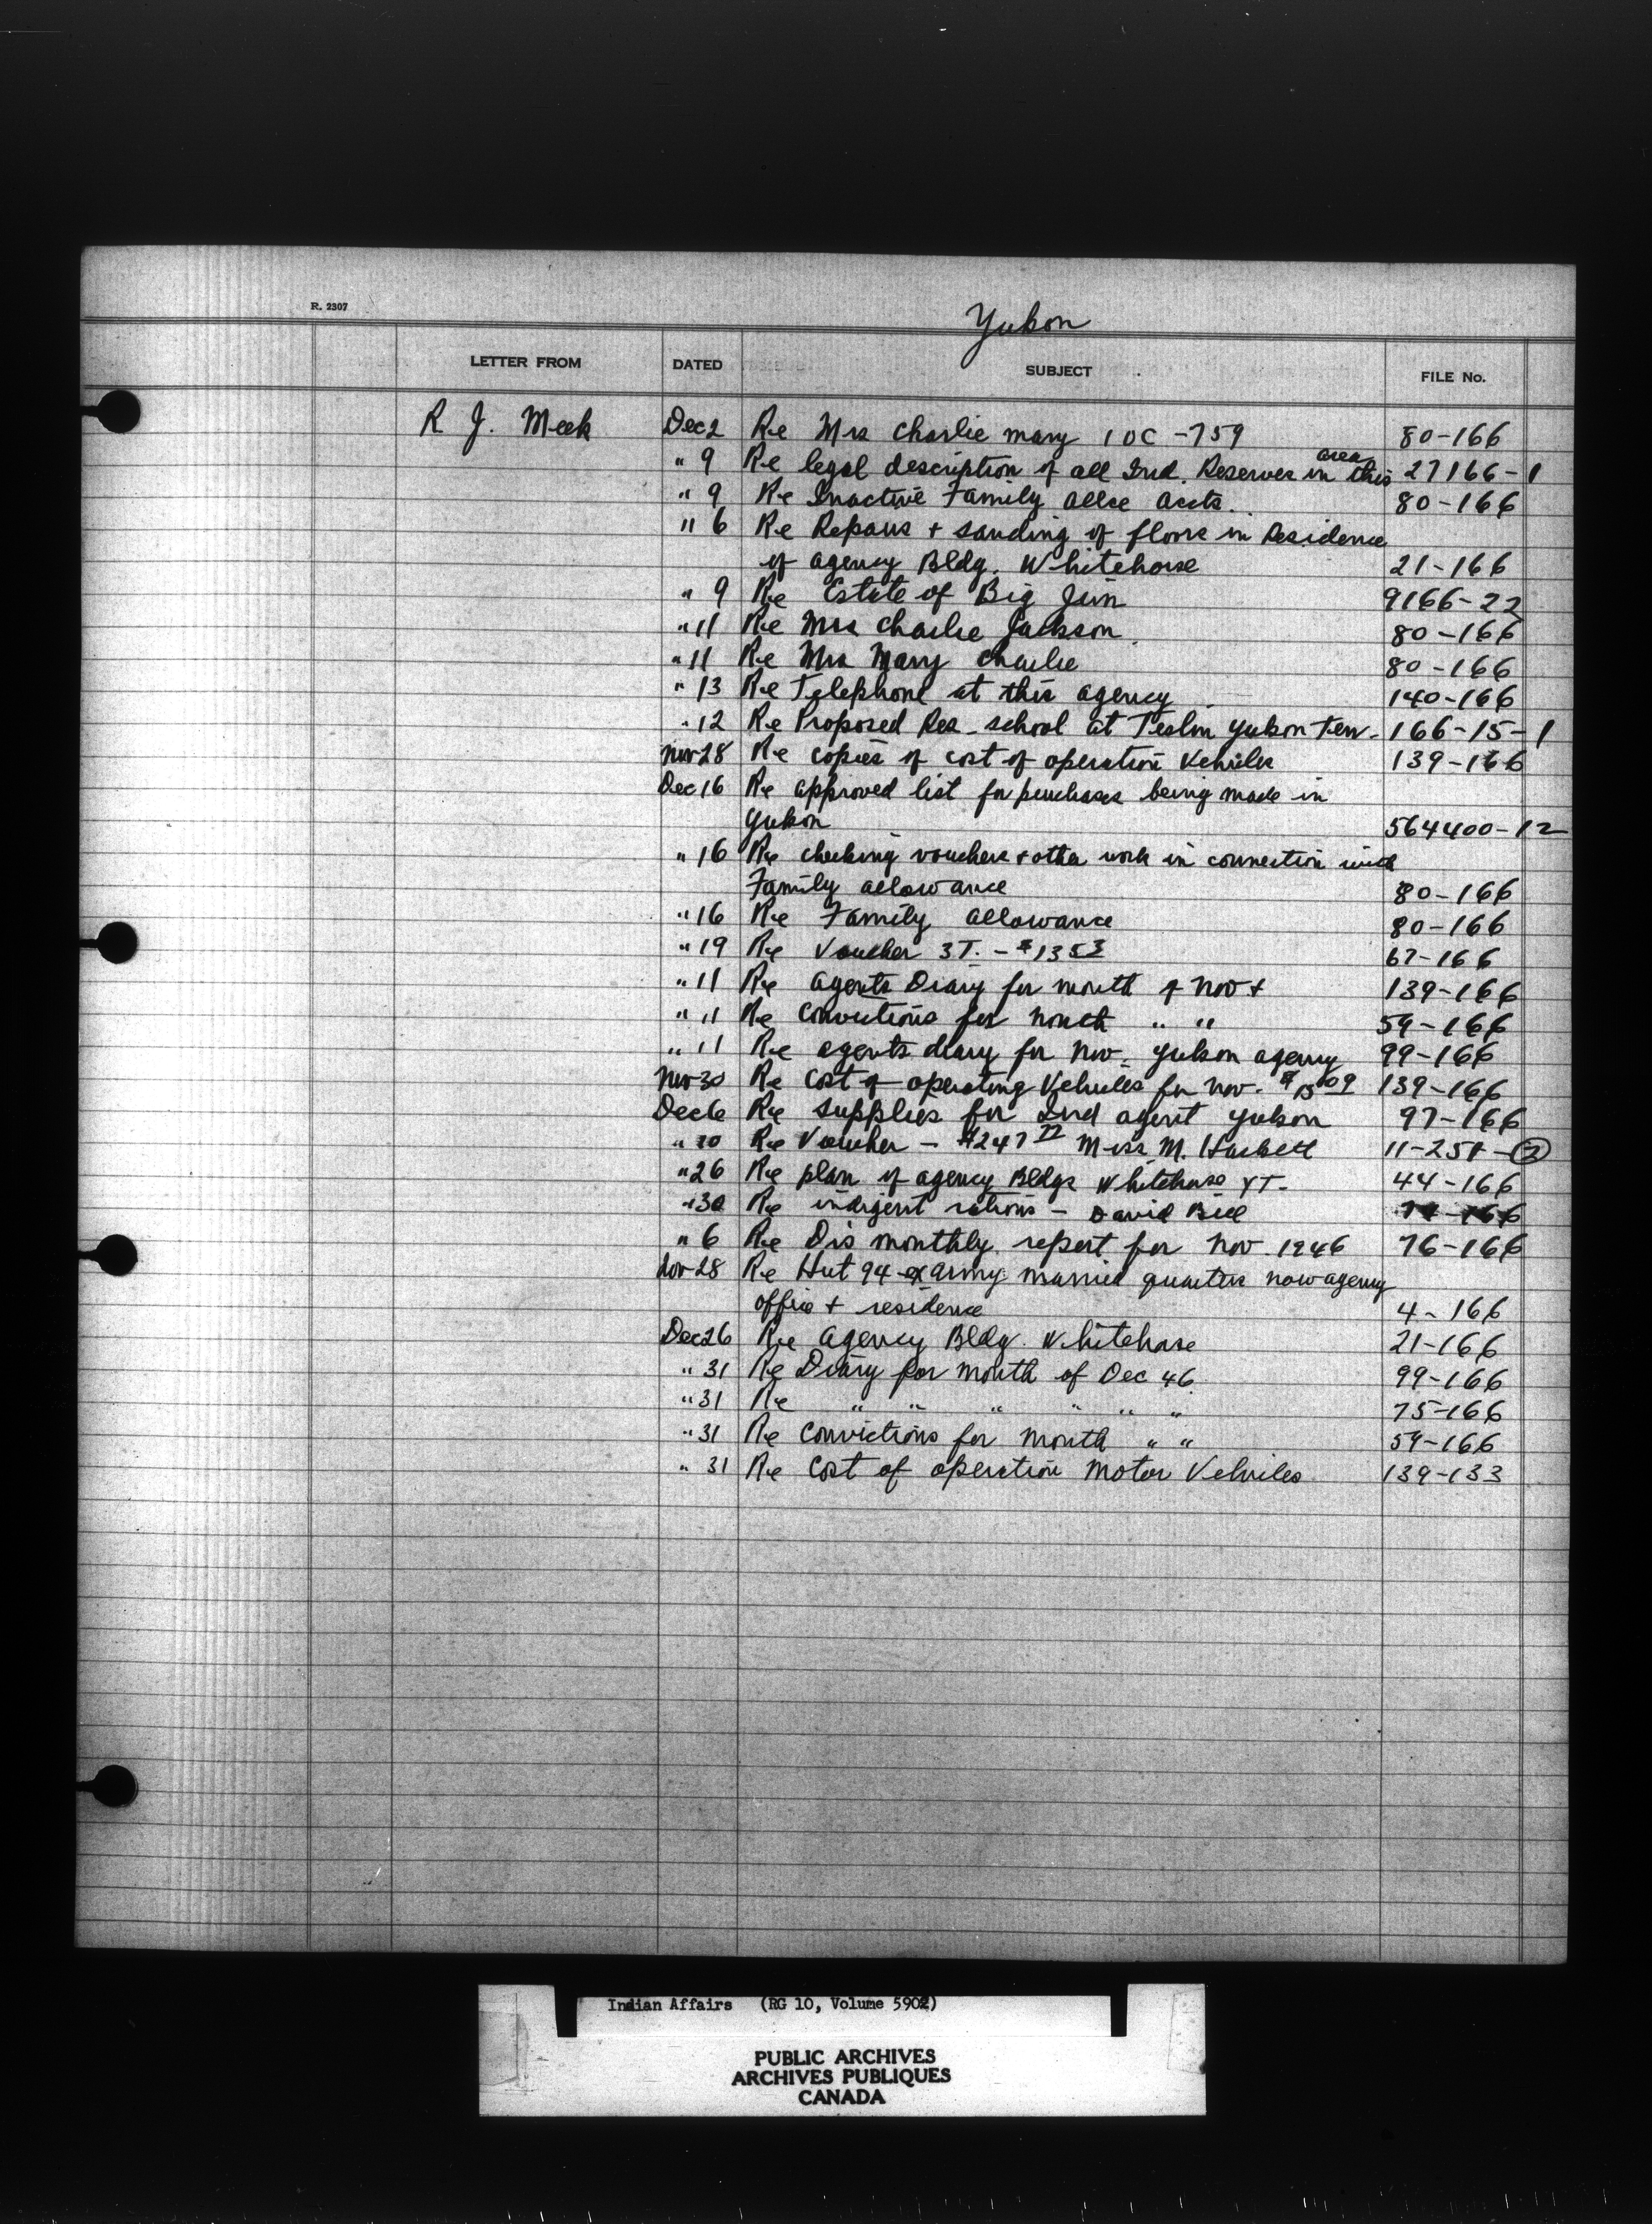 R. 2307
Yukon
LETTER FROM DATED SUBJECT FILE No.
R. J. Meek Dec 2 Re Mrs Charlie Mary 10C-759 80-166
area
" 9 Re legal description of all Ind. Reserves in this 27166-1
" 9 Re Inactive Family Allce Accts. 80-166
" 6 Re Repairs + sanding of floors in Residence
of agency Bldg. Whitehorse 21-166
" 9 Re Estate of Big Jim 9166-22
" 11 Re Mrs Charlie Jackson 80-166
" 11 Re Mrs Mary Charlie 80-166
" 13 Re Telephone at this agency 140-166
" 12 Re Proposed Res. school at Teslin Yukon Terr. 166-15-1
Nov 28 Re copies of cost of operation Vehicles 139-166
Dec 16 Re approved list for purchases being made in
Yukon 564400-12
" 16 Re checking vouchers + other work in connection with
Family allowance 80-166
" 16 Re Family allowance 80-166
" 19 Re Voucher 3T. - $13 53 67-166
" 11 Re agents Diary for month of Nov + 139-166
" 11 Re Convictions for month " " 59-166
" 11 Re agents diary for Nov. Yukon agency 99-166
Nov 30 Re Cost of operating Vehicles for Nov. $15 09 139-166
Dec 6 Re Supplies for Ind agent Yukon 97-166
" 10 Re Voucher - $247 77 Miss M. 11-251-2
" 26 Re plan of agency Bldgs Whitehorse YT- 44-166
" 30 Re indigent rations - David Bill
" 6 Re Dis monthly report for Nov 1946 76-166
Nov 28 Re Hut 94 ex army married quarters now agency
office + residence 4-166
Dec 26 Re Agency Bldg. Whitehorse 21-166
" 31 Re Diary for month of Dec 46. 99-166
" 31 Re " " " " " " 75-166
" 31 Re Convictions for month " " 59-166
" 31 Re Cost of operation Motor Vehicles 139-133
Indian Affairs (RG 10, Volume 5902)
PUBLIC ARCHIVES
ARCHIVES PUBLIQUES
CANADA